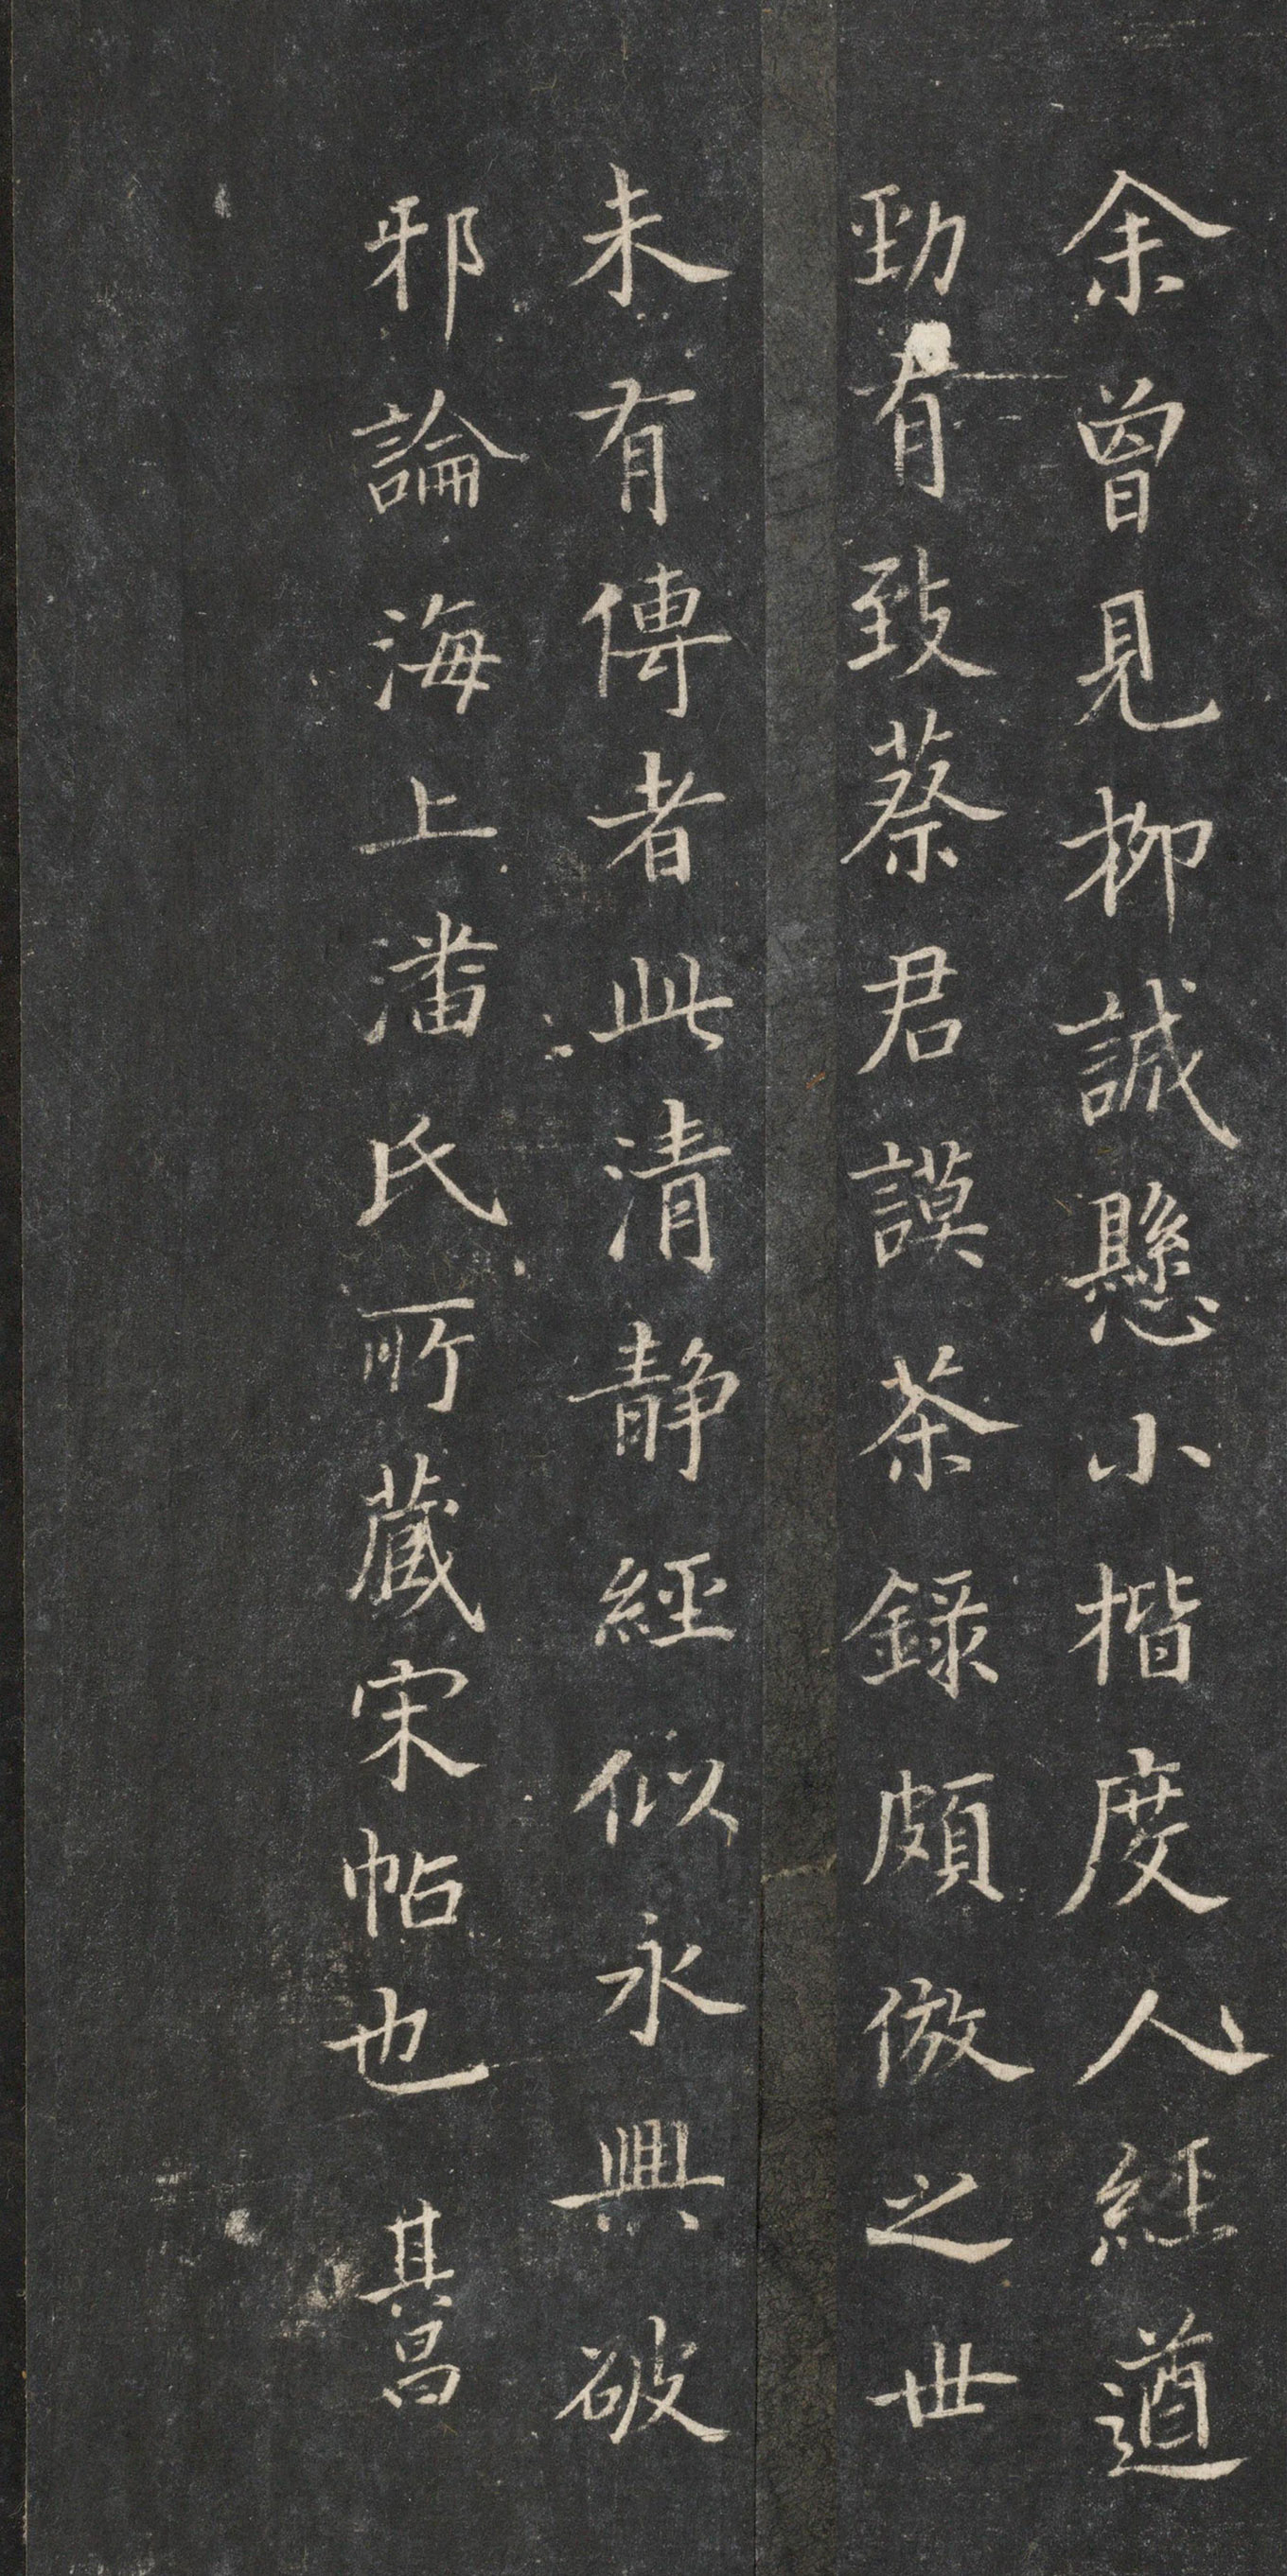 余曾見柳誠懸小楷度人經遒
勁有致蔡君謨茶錄頗倣之世
未有傳者此清靜經似永興破
邪論海上潘氏所藏宋帖也其昌